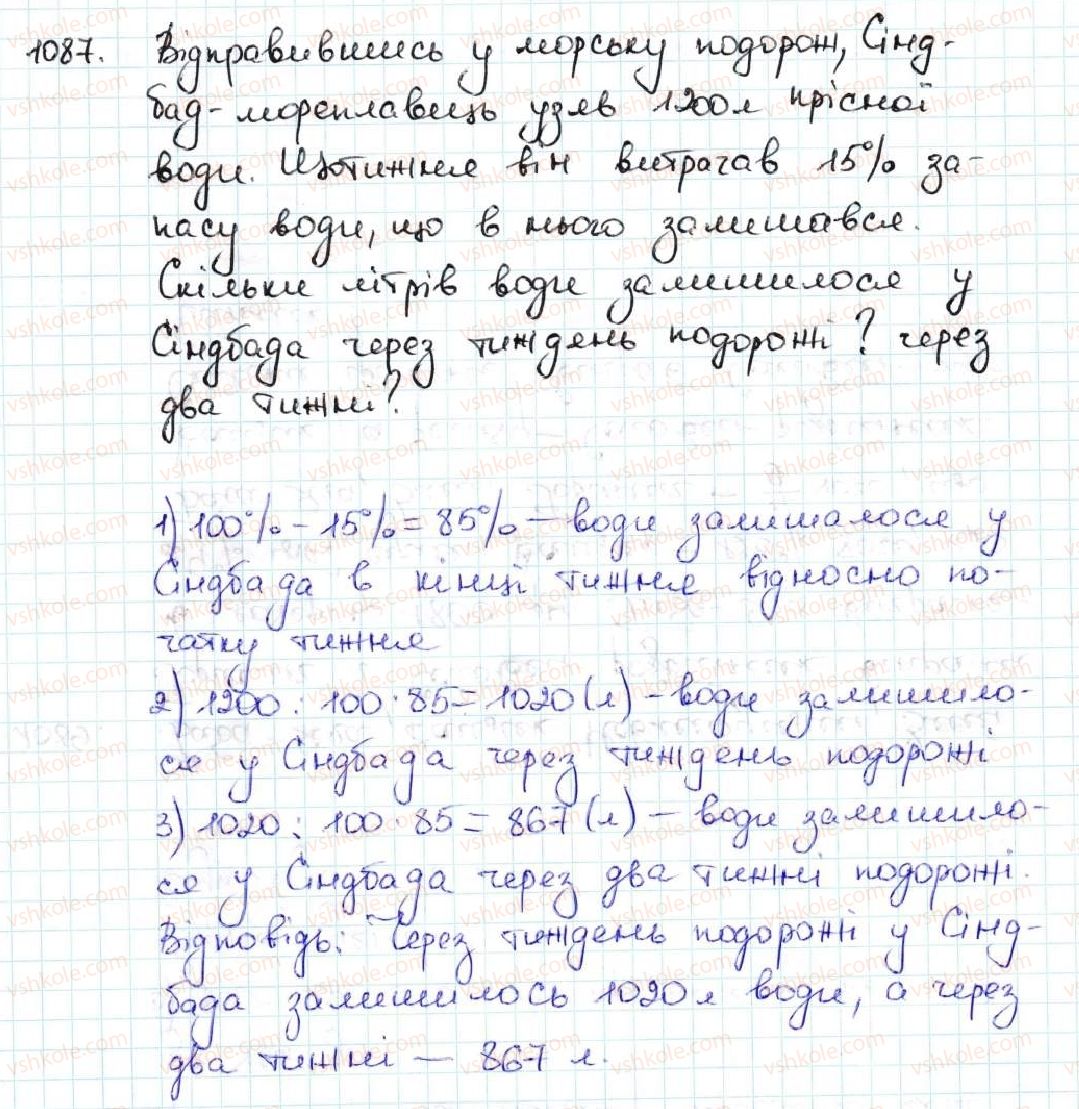 1087. Відправившись у морську подорож, Сінд-
бад-мореплавець узяв 1200 л прісної
води. Щотижня він витрачав 15% за-
пасу води, що в нього залишався.
Скільки літрів води залишилося у
Сіндбада через тиждень подорожі? через
два тижні?
1) 100% - 15% = 85% - води залишалося у
Сіндбада в кінці тижня відносно по-
чатку тижня
2) 1200 : 100 · 85 = 1020 (л) - води залишило-
ся у Сіндбада через тиждень подорожі
3) 1020 : 100 · 85 = 867 (л) - води залишило-
ся у Сіндбада через два тижні подорожі.
Відповідь: Через тиждень подорожі у Сінд-
бада залишилось 1020 л води, а через
два тижні - 867 л.